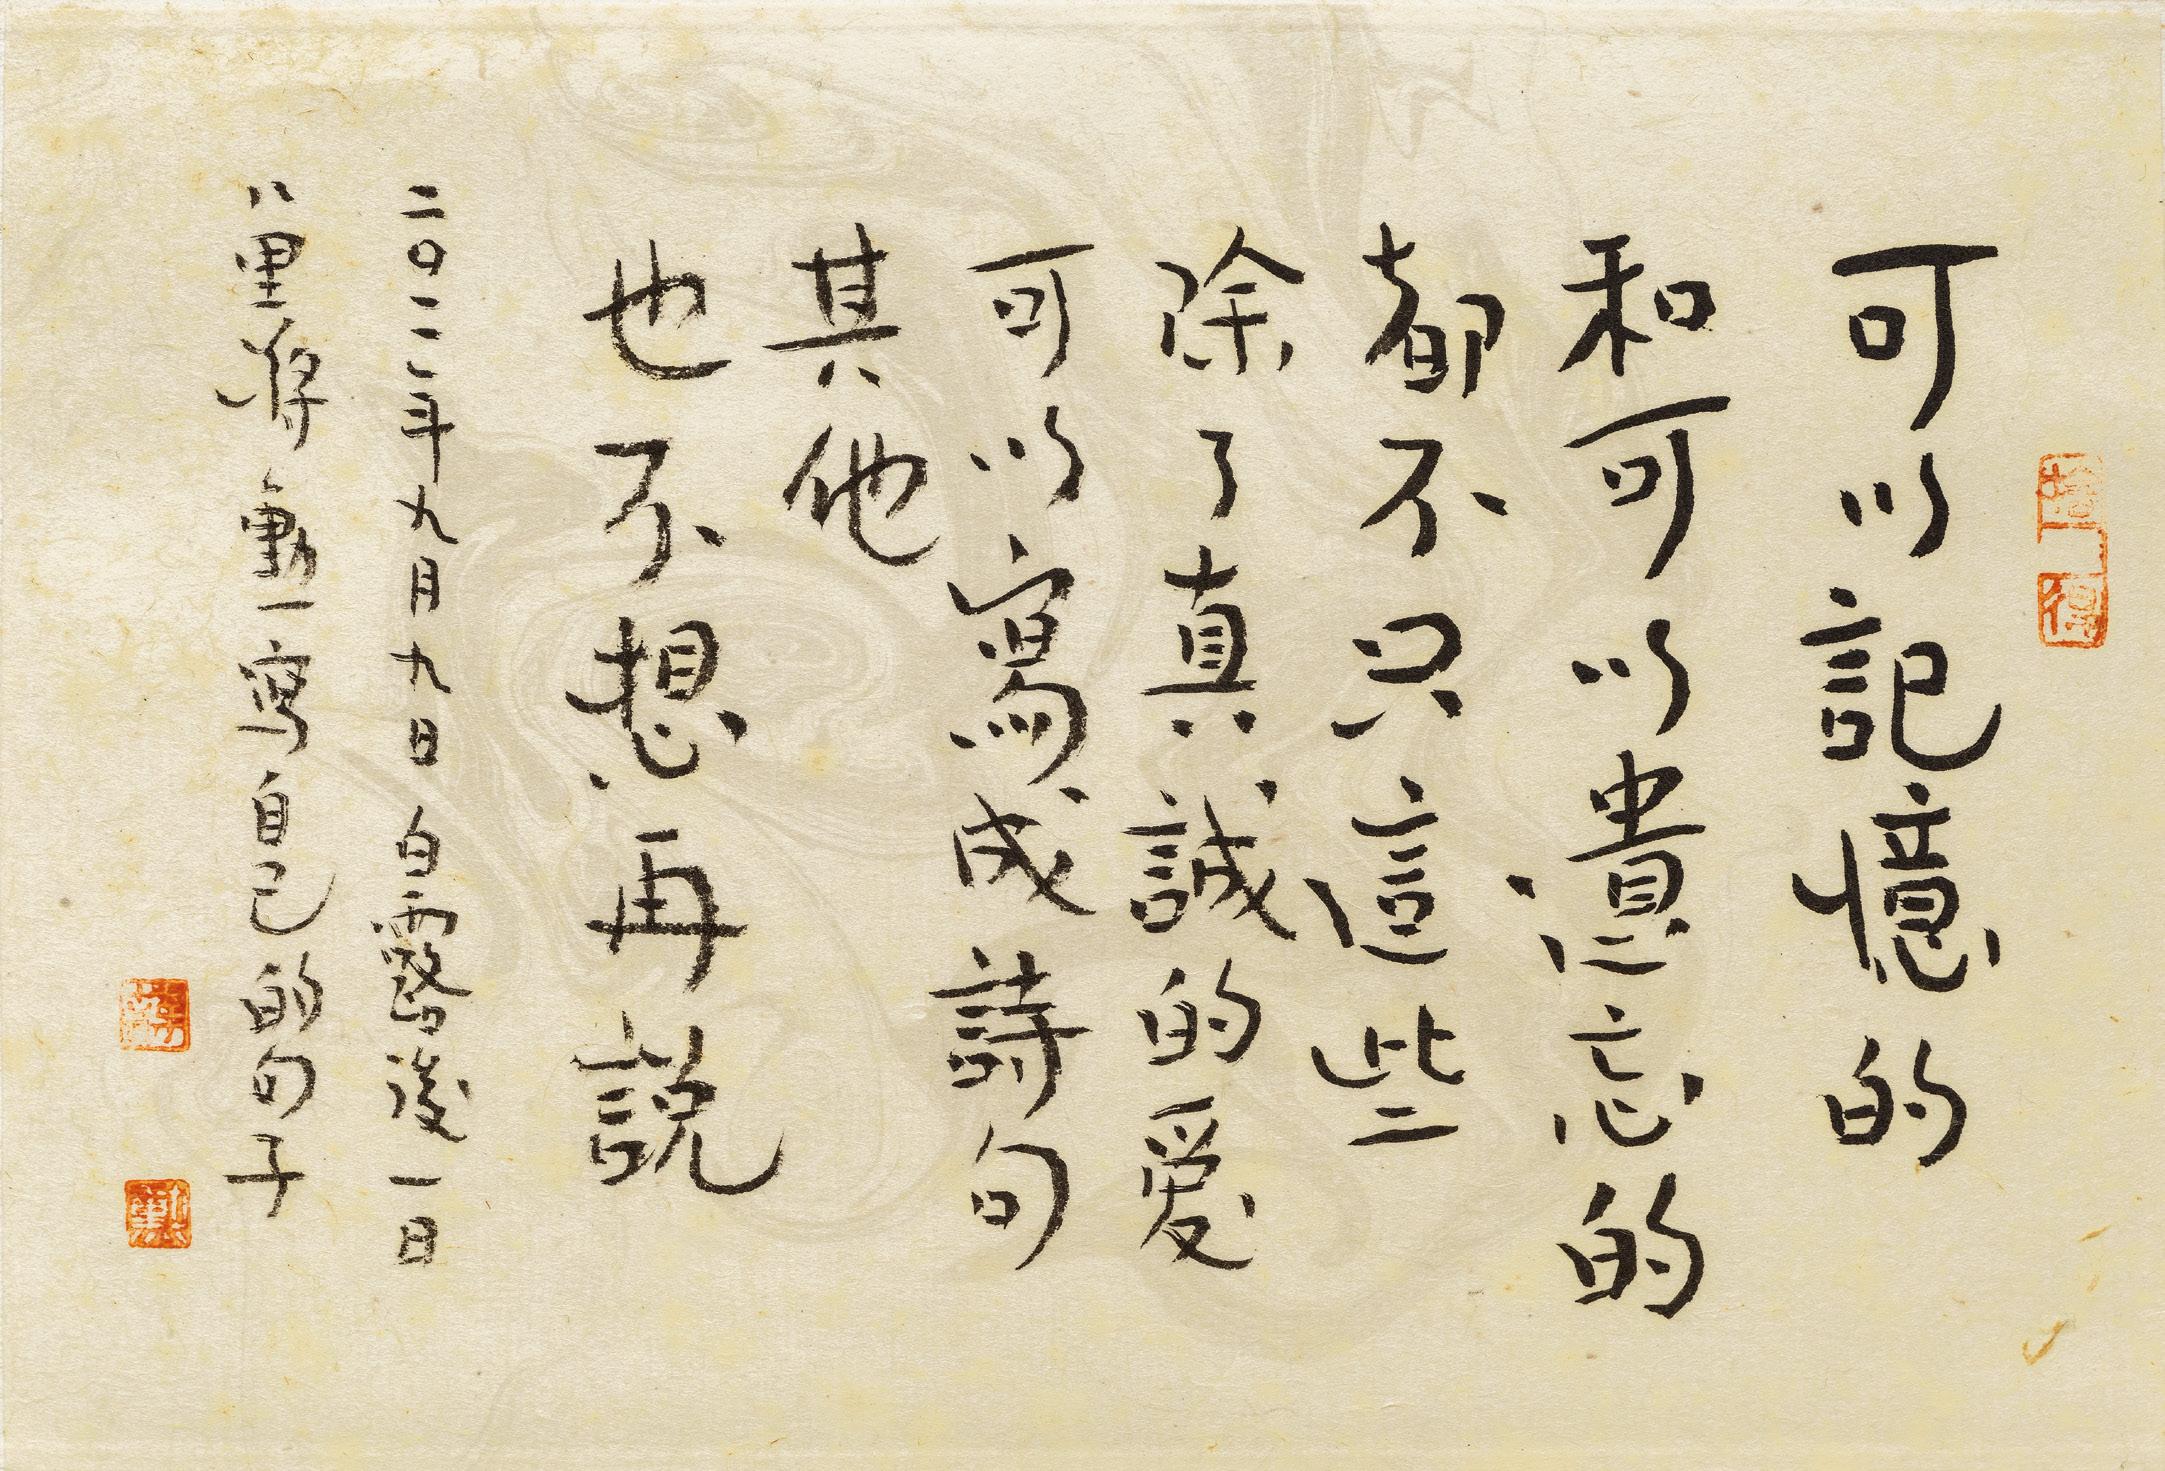 可以記憶的
和可以遺忘的
都不只這些
除了真誠的愛
可以寫成詩句
其他
也不想再説
二〇二二年九月九日白露後一日
八里蔣勳一寫自己的句子